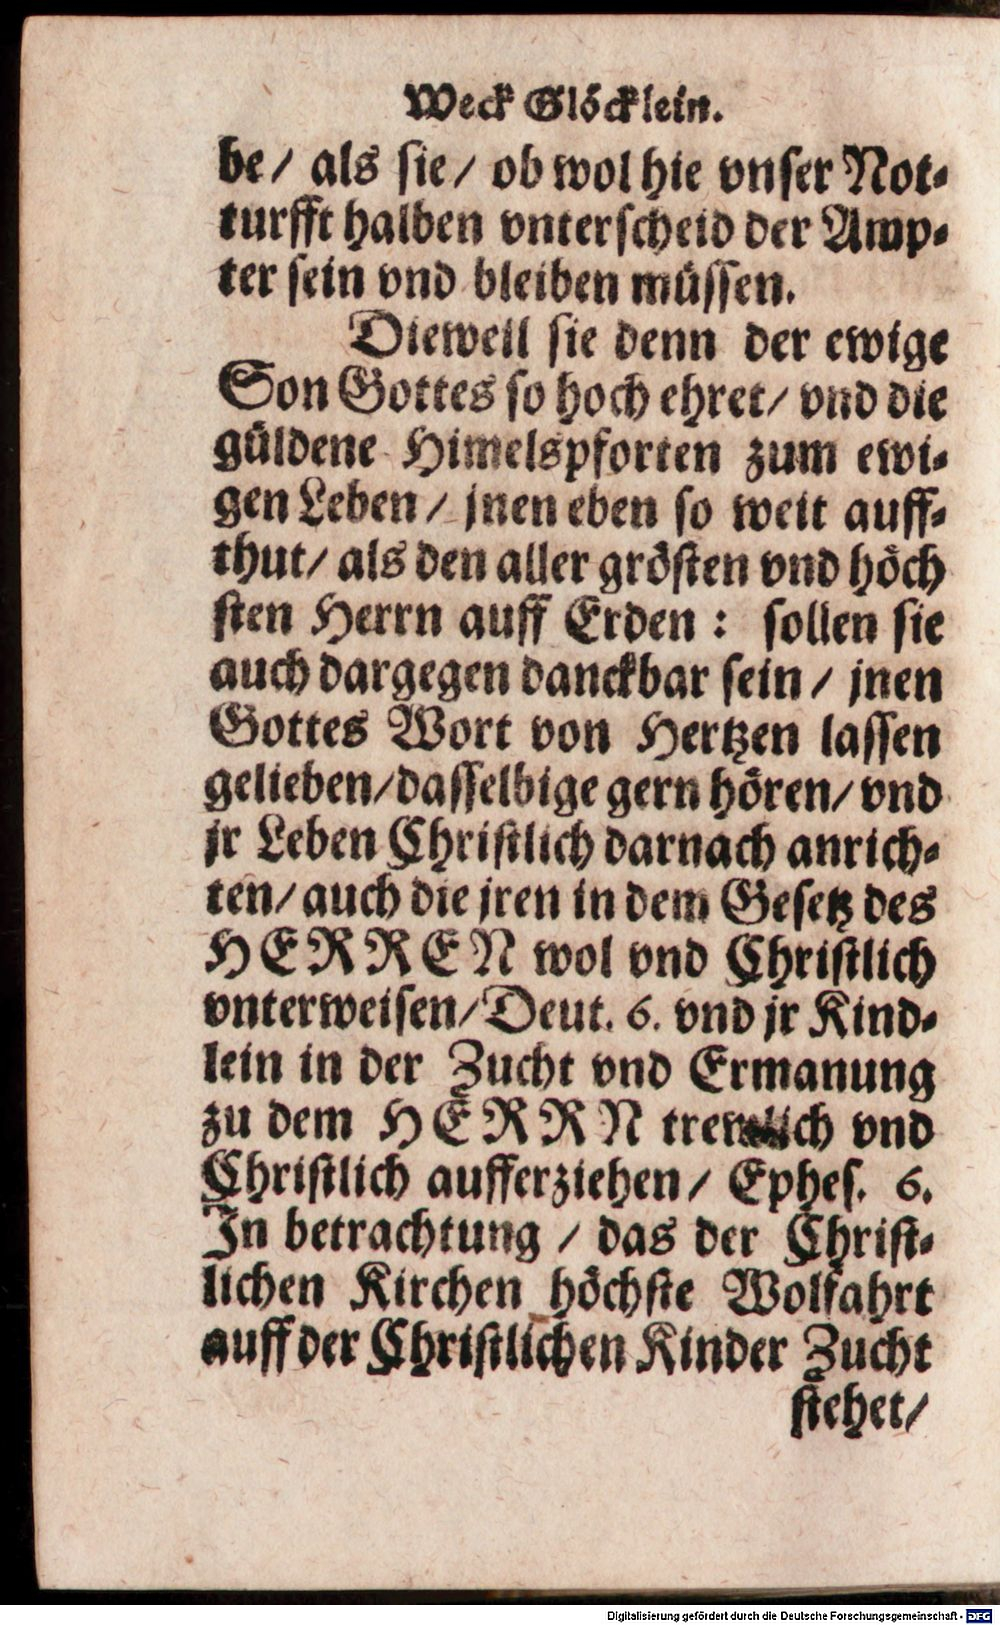 Weck Glöcklein.
be/ als sie/ ob wol hie vnser Not-
turfft halben vnterscheid der Amp-
ter sein vnd bleiben müssen.
Dieweil sie denn der ewige
Son Gottes so hoch ehret/ vnd die
güldene Himelspforten zum ewi-
gen Leben/ jnen eben so weit auff-
thut/ als den aller grösten vnd höch
sten Herrn auff Erden: sollen sie
auch dargegen danckbar sein/ jnen
Gottes Wort von Hertzen lassen
gelieben/ dasselbige gern hören/ vnd
jr Leben Christlich darnach anrich-
ten/ auch die jren in dem Gesetz des
HERREN wol vnd Christlich
vnterweisen/ Deut. 6. vnd jr Kind-
lein in der Zucht vnd Ermanung
zu dem HERRN trewlich vnd
Christlich aufferziehen/ Ephes. 6.
In betrachtung/ das der Christ-
lichen Kirchen höchste Wolfahrt
auff der Christlichen Kinder Zucht
stehet/
Digitalisierung gefördert durch die Deutsche Forschungsgemeinschaft - DFG